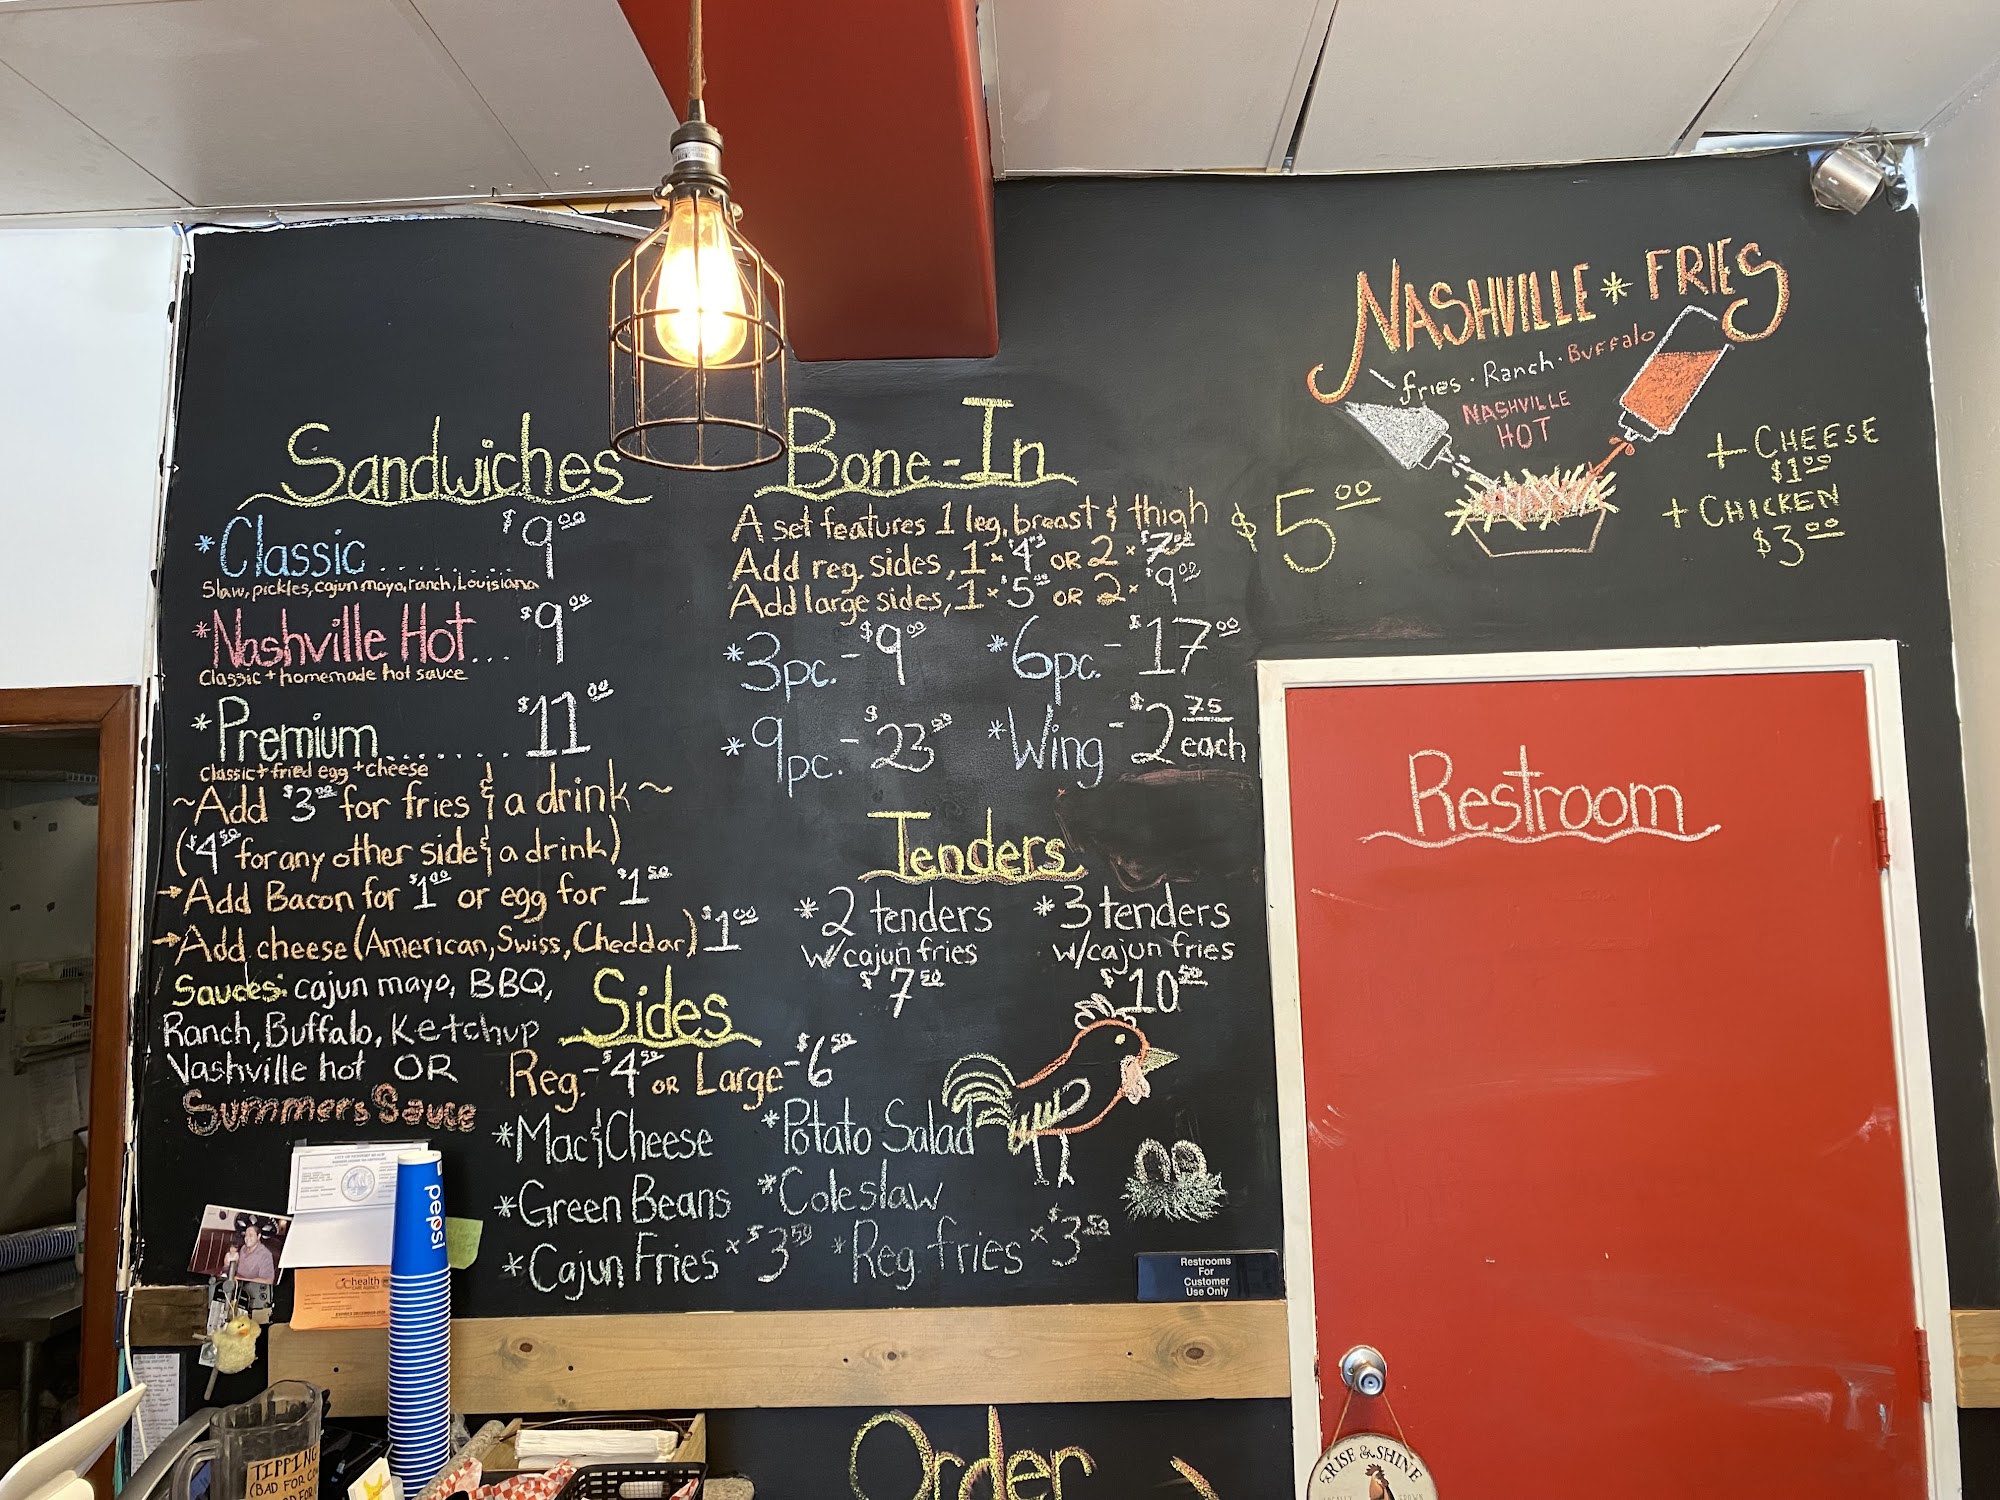 Sandwiches
*Classic ......... $9.00
Slaw, pickles, cajun mayo, ranch, Louisiana
*Nashville Hot... $9.00
Classic + homemade hot sauce
*Premium....... $11.00
Classic + fried egg + cheese
~Add $3.00 for fries & a drink~
($4.50 for any other side & a drink)
→Add Bacon for $1.00 or egg for $1.50
→Add cheese (American, Swiss, Cheddar) $1.00
Sauces: cajun mayo, BBQ,
Ranch, Buffalo, Ketchup
Nashville hot OR
Summers Sauce
Bone-In
A set features 1 leg, breast & thigh
Add reg. sides, 1 × $4 OR 2 × $7
Add large sides, 1 × $5 OR 2 × $9.00
*3pc. - $9.00 *6pc. - $17.00
*9pc. - $23.50 *Wing - $2.75 each
Tenders
*2 tenders
w/cajun fries
$7.50
*3 tenders
w/cajun fries
$10.50
Sides
Reg. - $4.50 OR Large - $6.50
*Mac & Cheese *Potato Salad
*Green Beans *Coleslaw
*Cajun Fries × $3.50 *Reg. fries × $3.50
NASHVILLE * FRIES
fries · Ranch · Buffalo
NASHVILLE
HOT
$5.00
+ CHEESE
$1.00
+ CHICKEN
$3.00
Restroom
Restrooms
For
Customer
Use Only
pepsi
health
TIPPING
(BAD FOR
Order
RISE & SHINE